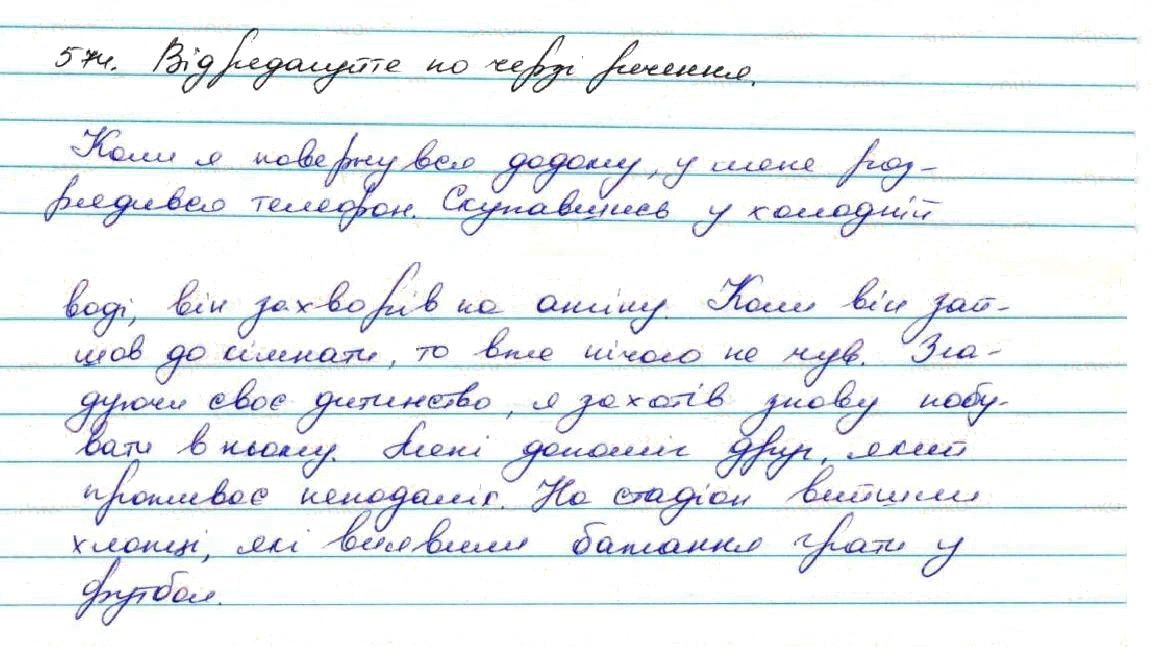 574. Відредагуйте по черзі речення.
Коли я повернувся додому, у мене роз-
рядився телефон. Скупавшись у холодній
воді, він захворів на ангіну. Коли він зай-
шов до кімнати, то вже нічого не чув. Зга-
дуючи своє дитинство, я захотів знову побу-
вати в ньому. Мені допоміг друг, який
проживає неподалік. На стадіон вийшли
хлопці, які виявили бажання грати у
футбол.